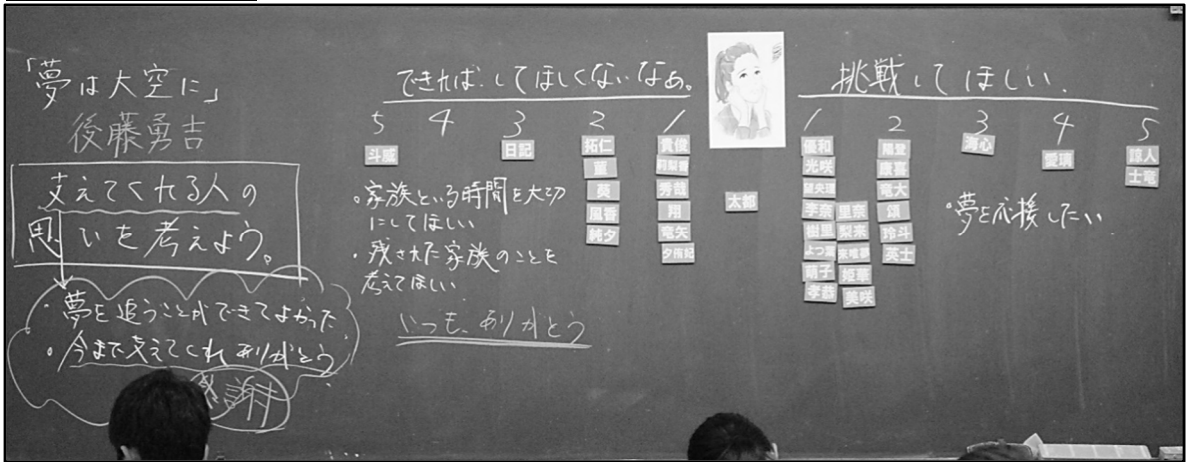 「夢は大空に」
後藤勇吉
支えてくれる人の
思いを考えよう。
・夢を追うことができてよかった
・今まで支えてくれ ありがとう
感謝
できれば、してほしくないなぁ。
5 4 3 2 1
斗威
日記
拓仁
菫
葵
風香
純夕
貴俊
莉梨香
秀哉
翔
竜矢
夕侑妃
・家族といる時間を大切
にしてほしい
・残された家族のことを
考えてほしい
いつも、ありがとう
太都
挑戦してほしい。
1 2 3 4 5
優和
光咲
望央理
李奈
樹里
萌子
孝恭
里奈
梨来
姫華
美咲
陽登
康喜
竜大
頌
玲斗
英士
海心
愛璃
諒人
士竜
・夢を応援したい